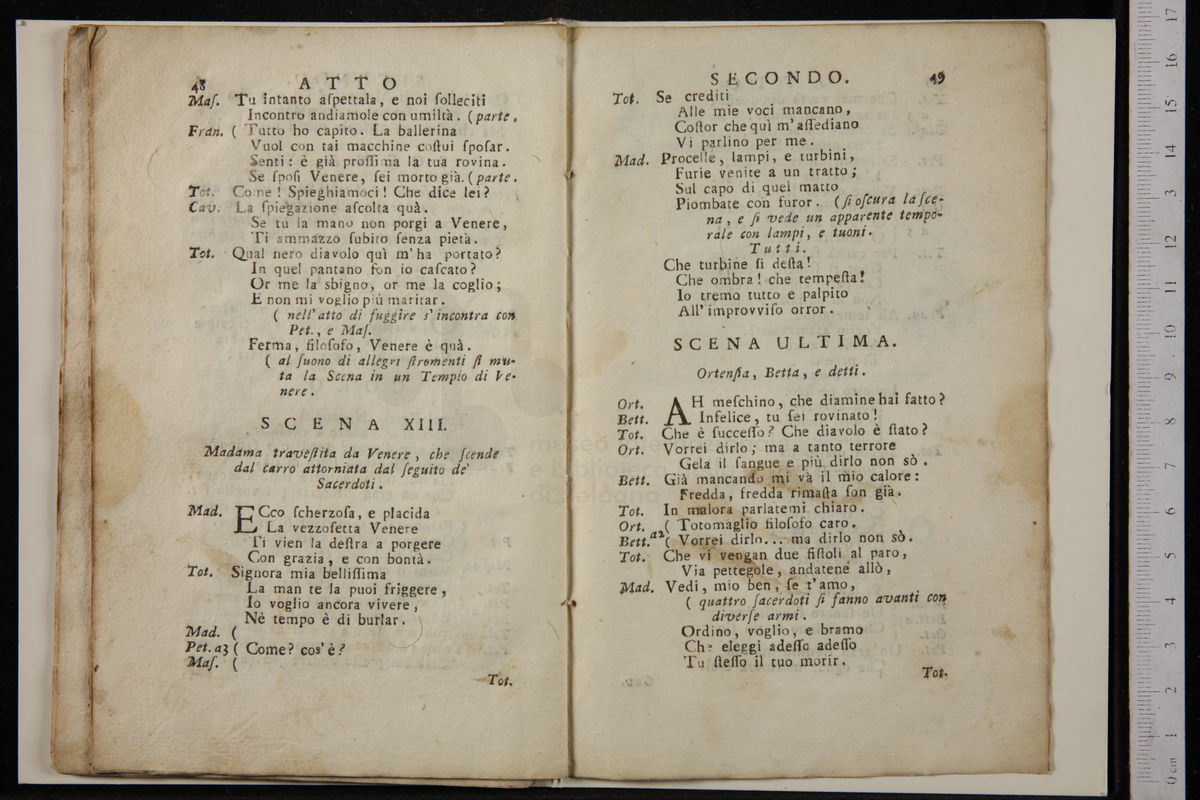 48 ATTO
Maſ. Tu intanto aſpettala, e noi ſolleciti
Incontro andiamole con umiltà. (parte.
Fran. ( Tutto ho capito. La ballerina
Vuol con tai macchine coſtui ſpoſar.
Senti: è già proſſima la tua rovina.
Se ſpoſi Venere, ſei morto già. (parte.
Tot. Come! Spieghiamoci! Che dice lei?
Cav. La ſpiegazione aſcolta quà.
Se tu la mano non porgi a Venere,
Ti ammazzo ſubito ſenza pietà.
Tot. Qual nero diavolo quì m'ha portato?
In quel pantano ſon io caſcato?
Or me la sbigno, or me la coglio;
E non mi voglio più maritar.
( nell' atto di fuggire s' incontra con
Pet., e Maſ.
Ferma, filoſofo, Venere è quà.
( al ſuono di allegri ſtromenti ſi mu-
ta la Scena in un Tempio di Ve-
nere.
SCENA XIII.
Madama traveſtita da Venere, che ſcende
dal carro attorniata dal ſeguito de'
Sacerdoti.
Mad. ECco ſcherzoſa, e placida
La vezzoſetta Venere
Ti vien la deſtra a porgere
Con grazia, e con bontà.
Tot. Signora mia belliſſima
La man te la puoi friggere,
Io voglio ancora vivere,
Nè tempo è di burlar.
Mad. (
Pet. a3 ( Come? cos'è?
Maſ. (
Tot.
SECONDO. 49
Tot. Se crediti
Alle mie voci mancano,
Coſtor che quì m'aſſediano
Vi parlino per me.
Mad. Procelle, lampi, e turbini,
Furie venite a un tratto;
Sul capo di quel matto
Piombate con furor. (ſi oſcura la ſce-
na, e ſi vede un apparente tempo-
rale con lampi, e tuoni.
Tutti.
Che turbine ſi deſta!
Che ombra! che tempeſta!
Io tremo tutto e palpito
All' improvviſo orror.
SCENA ULTIMA.
Ortenſia, Betta, e detti.
Ort. AH meſchino, che diamine hai fatto?
Bett. Infelice, tu ſei rovinato!
Tot. Che è ſucceſſo? Che diavolo è ſtato?
Ort. Vorrei dirlo; ma a tanto terrore
Gela il ſangue e più dirlo non sò.
Bett. Già mancando mi và il mio calore:
Fredda, fredda rimaſta ſon già.
Tot. In malora parlatemi chiaro.
Ort. ( Totomaglio filoſofo caro.
Bett. a2 ( Vorrei dirlo... ma dirlo non sò.
Tot. Che vi vengan due fiſtoli al paro,
Via pettegole, andatene allò,
Mad. Vedi, mio ben, ſe t'amo,
( quattro ſacerdoti ſi fanno avanti con
diverſe armi.
Ordino, voglio, e bramo
Che eleggi adeſſo adeſſo
Tu ſteſſo il tuo morir.
Tot.